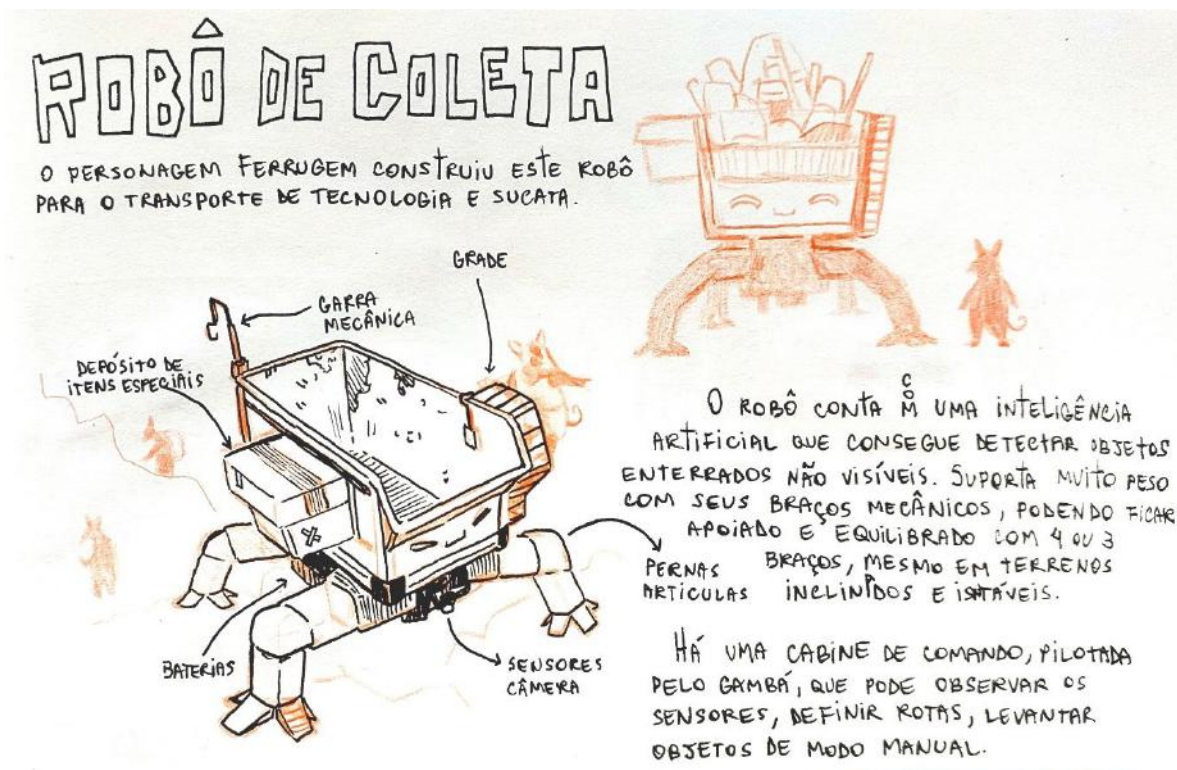 ROBÔ DE COLETA
O PERSONAGEM FERRUGEM CONSTRUIU ESTE ROBÔ
PARA O TRANSPORTE DE TECNOLOGIA E SUCATA.
GRADE
GARRA
MECÂNICA
DEPÓSITO DE
ITENS ESPECIAIS
BATERIAS
SENSORES
CÂMERA
PERNAS
ARTICULAS
O ROBÔ CONTA COM UMA INTELIGÊNCIA
ARTIFICIAL QUE CONSEGUE DETECTAR OBJETOS
ENTERRADOS NÃO VISÍVEIS. SUPORTA MUITO PESO
COM SEUS BRAÇOS MECÂNICOS, PODENDO FICAR
APOIADO E EQUILIBRADO COM 4 OU 3
BRAÇOS, MESMO EM TERRENOS
INCLINADOS E INSTÁVEIS.
HÁ UMA CABINE DE COMANDO, PILOTADA
PELO GAMBÁ, QUE PODE OBSERVAR OS
SENSORES, DEFINIR ROTAS, LEVANTAR
OBJETOS DE MODO MANUAL.